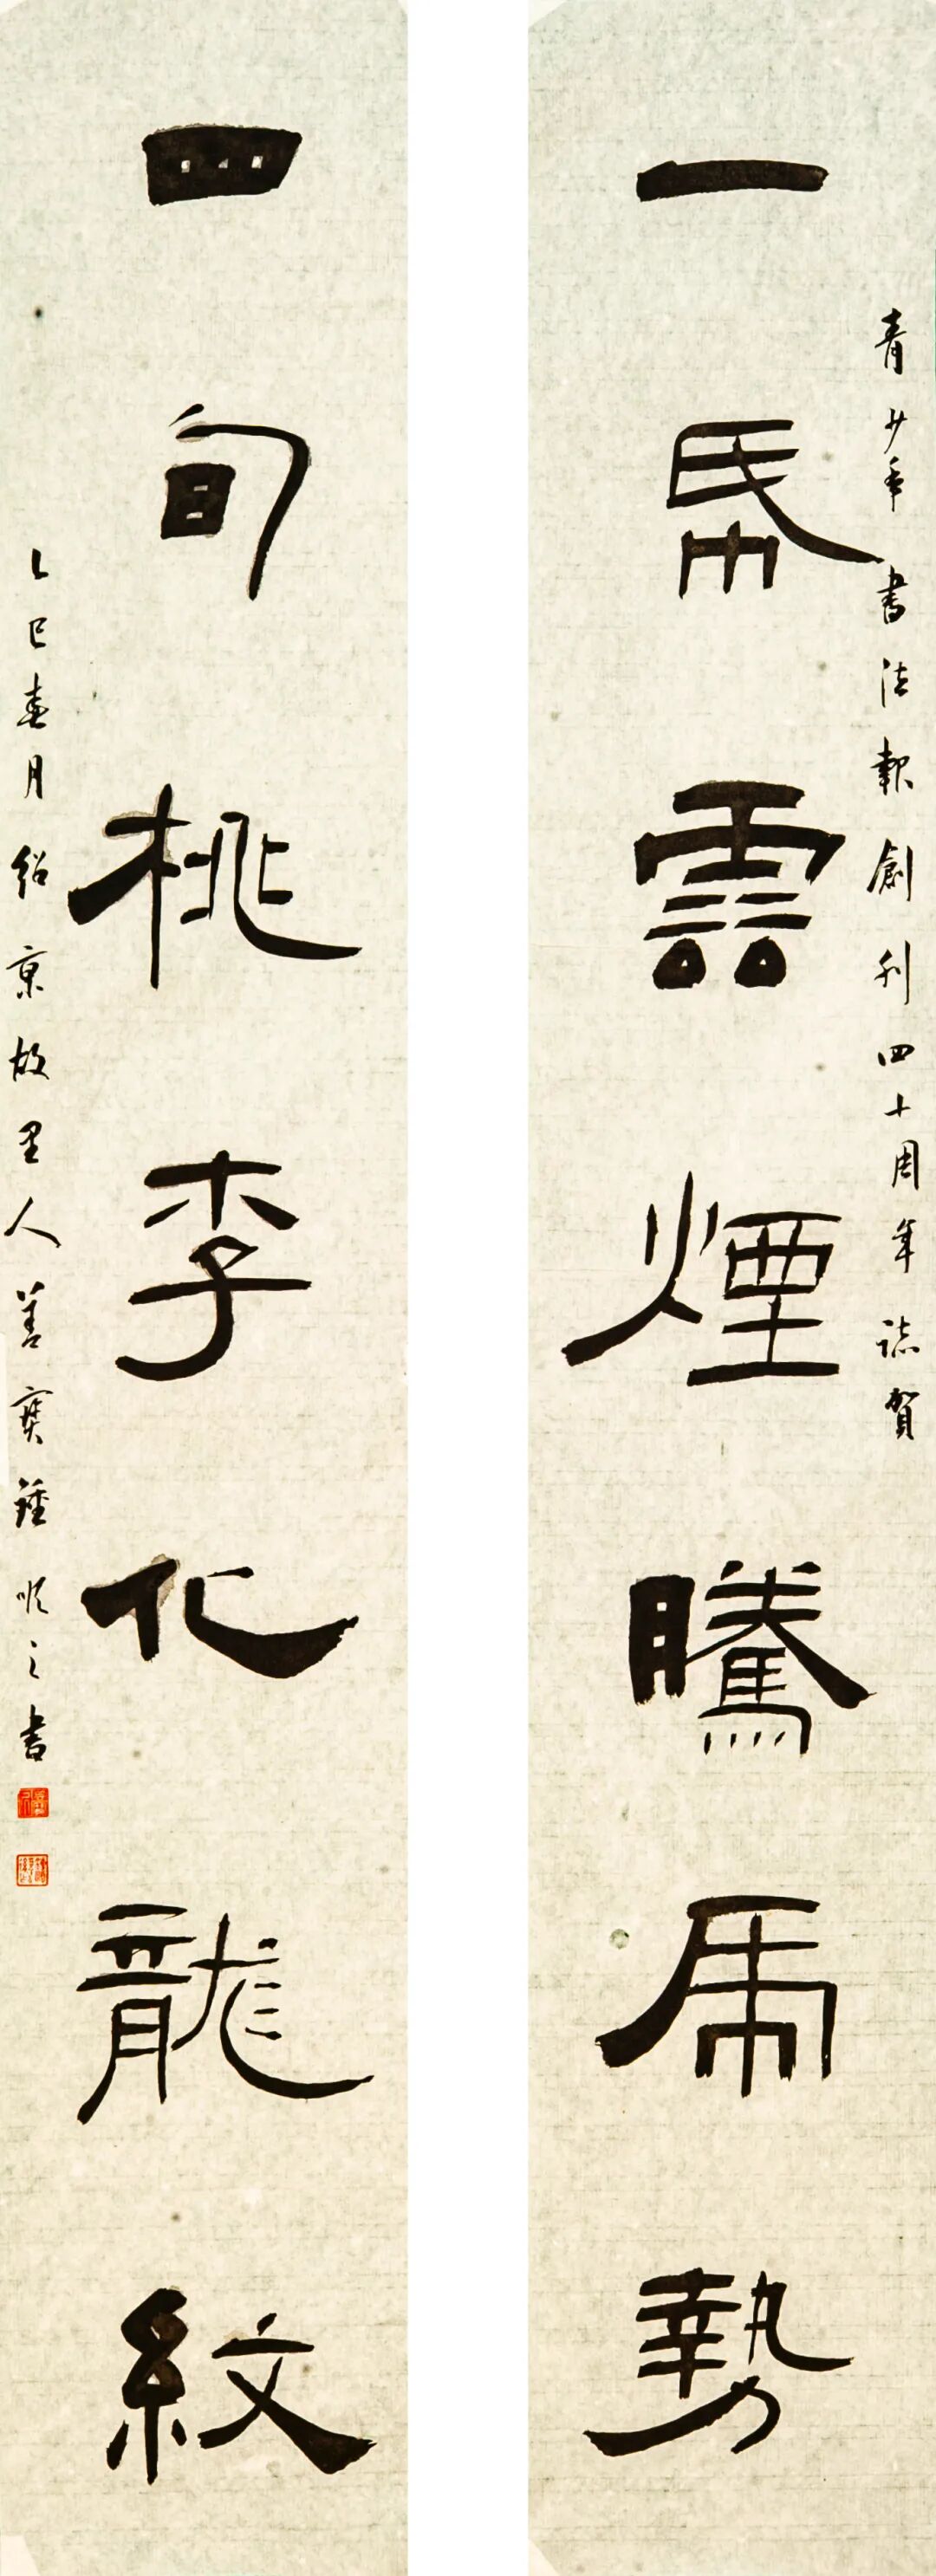 青少年書法報創刊四十周年誌賀
一帋雲煙騰虎勢
四旬桃李化龍紋
乙巳春月紹京故里人善鍾順之書